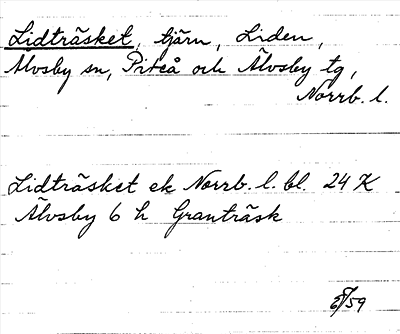 Lidträsket, tjärn, Liden,
Älvsby sn, Piteå och Älvsby tg,
Norrb. l.
Lidträsket ek Norrb. l. bl. 24 K
Älvsby 6 h Granträsk